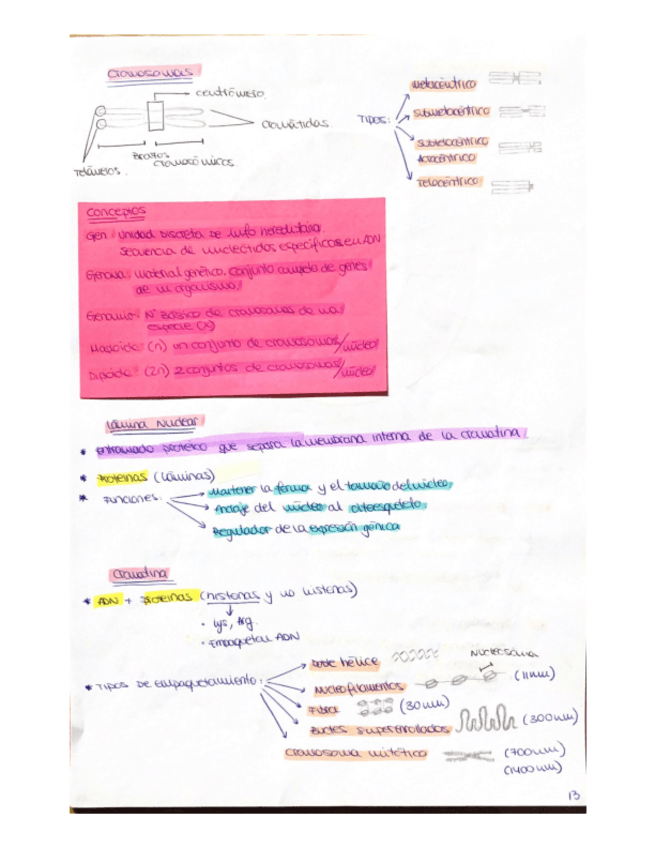 Cromosomas
centrómero.
cromátidas.
Brazos
cromosómicos
Telómeros.
TIPOS:
Metacéntrico
Submetacéntrico
Subtelocéntrico
Acrocéntrico
Telocéntrico
Conceptos
Gen: unidad discreta de info hereditaria.
Secuencia de nucleótidos específicos en ADN
Genoma: material genético. conjunto completo de genes
de un organismo.
Genomio: Nº Básico de cromosomas de una
especie (x)
Haploide: (n) un conjunto de cromosomas/núcleo
Diploide: (2n) 2 conjuntos de cromosomas/núcleo
Lámina Nuclear
* entramado proteico que separa la membrana interna de la cromatina.
* Proteinas (láminas)
* Funciones:
Mantener la forma y el tamaño del núcleo,
Anclaje del núcleo al citoesqueleto,
Regulador de la expresión génica
Cromatina
* ADN + proteinas (histonas y no histonas)
· Lys, Arg.
· Empaquetan ADN
* TIPOS DE empaquetamiento:
Doble hélice
Nucleosoma
Nucleofilamentos (11nm)
Fibra (30nm)
Bucles superenrollados (300nm)
Cromosoma mitótico (700nm)
(1400nm)
13